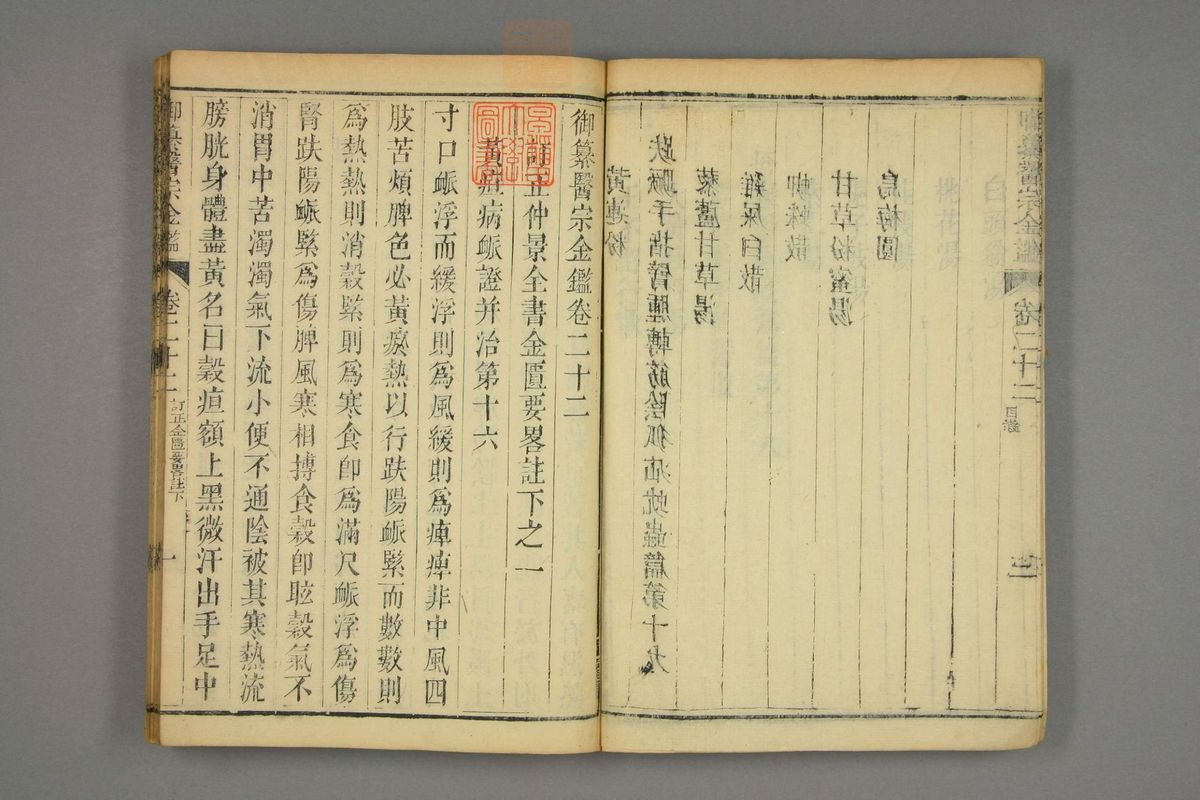 御纂醫宗金鑑 卷二十二 目錄
烏梅圓
甘草粉蜜湯
蜘蛛散
雞屎白散
藜蘆甘草湯
趺蹶手指臂腫轉筋陰狐疝蚘蟲篇第十九
黃連粉
御纂醫宗金鑑卷二十二
訂正仲景全書金匱要畧註下之一
黃疸病脈證并治第十六
寸口脈浮而緩浮則為風緩則為痺痺非中風四
肢苦煩脾色必黃瘀熱以行趺陽脈緊而數數則
為熱熱則消穀緊則為寒食卽為滿尺脈浮為傷
腎趺陽脈緊為傷脾風寒相摶食穀卽眩穀氣不
消胃中苦濁濁氣下流小便不通陰被其寒熱流
膀胱身體盡黃名曰穀疸額上黑微汗出手足中
御纂醫宗金鑑 卷二十二 訂正金匱要畧註下 一